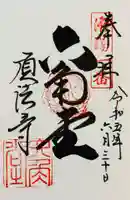 奉拝
令和五年六月三十日
六角堂
頂法寺